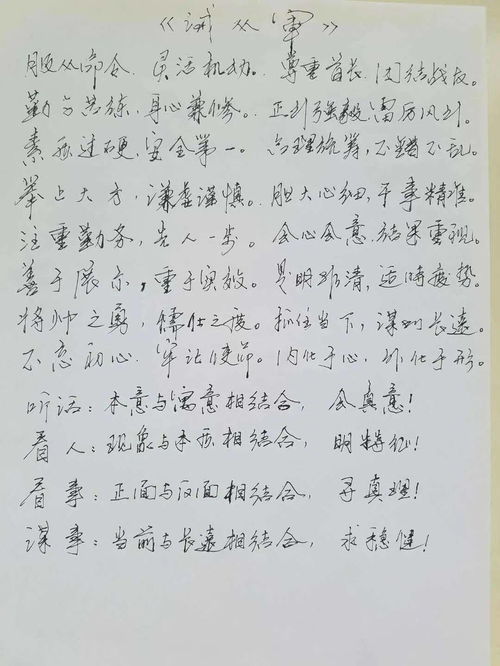 《诫从军》
服从命令.灵活机动.尊重首长.团结战友.
勤学苦练,身心兼修。正利强毅,雷厉风行.
素质过硬,安全第一。合理统筹,不错不乱。
举止大方,谦虚谨慎。胆大心细,干事精准。
注重勤务,先人一步。会心会意.结果重现。
善于展示,重于实效。是明非清,适時度势。
将帅之勇,儒仕之度。抓住当下,谋划长遠。
不忘初心.牢记使命。内化于心,外化于形。
听话:本意与寓意相结合,会真意!
看人:现象与本质相结合,明特征!
看事:正面与反面相结合,寻真理!
谋事:当前与长遠相结合,求稳健!